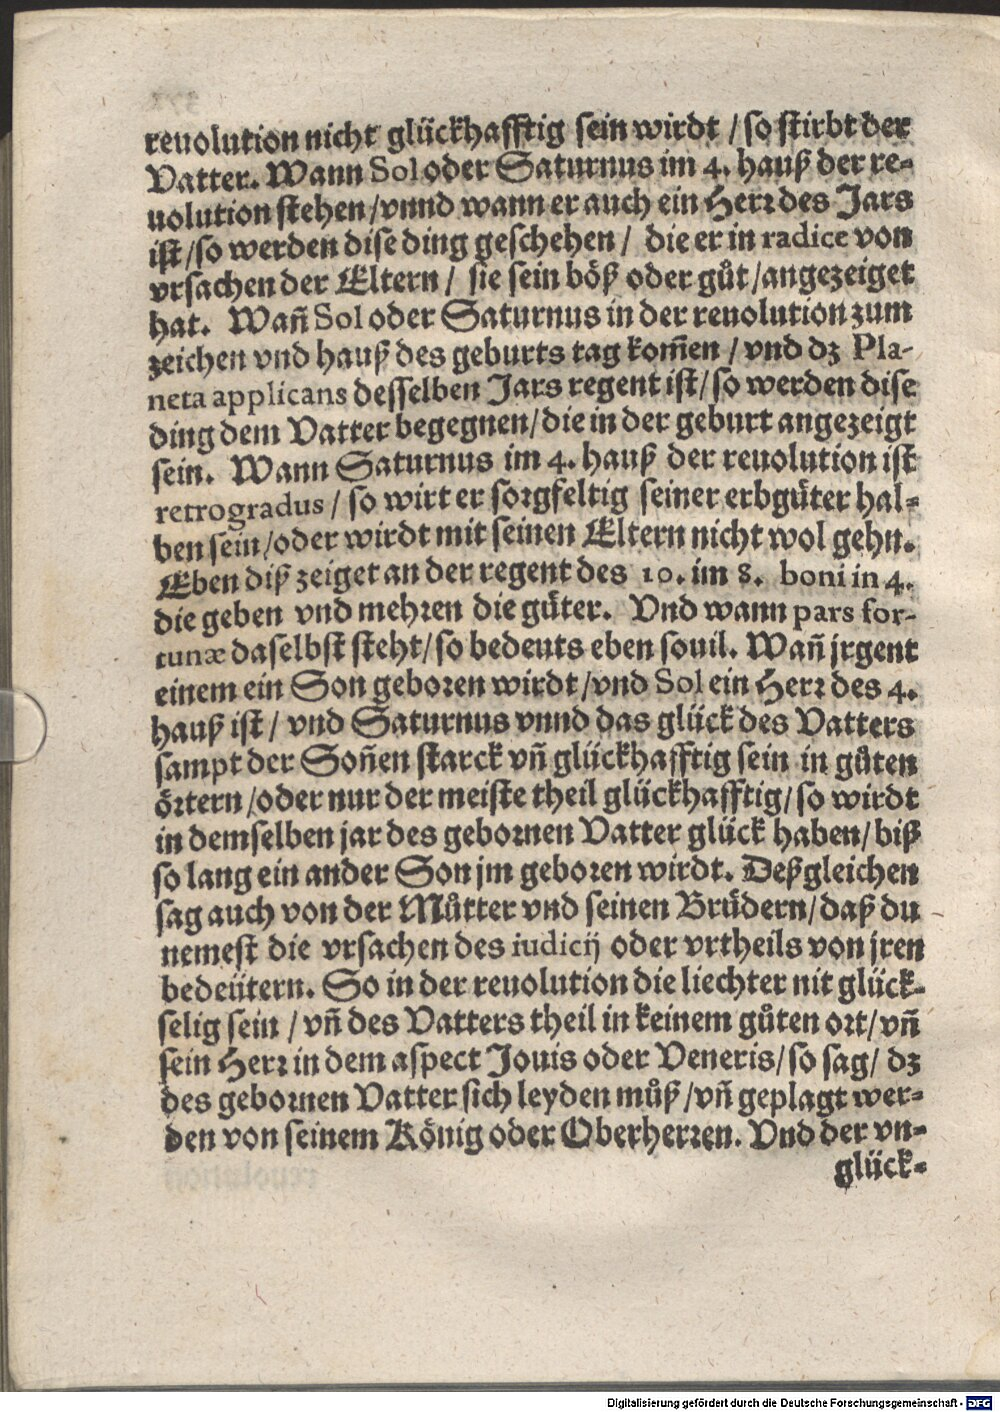 reuolution nicht glückhafftig sein wirdt / so stirbt der
Vatter. Wann Sol oder Saturnus im 4. hauß der re-
uolution stehen / vnnd wann er auch ein Herr des Jars
ist / so werden dise ding geschehen / die er in radice von
vrsachen der Eltern / sie sein böß oder gůt / angezeiget
hat. Wañ Sol oder Saturnus in der reuolution zum
zeichen vnd hauß des geburts tag kom̃en / vnd dz Pla-
neta applicans desselben Jars regent ist / so werden dise
ding dem Vatter begegnen / die in der geburt angezeigt
sein. Wann Saturnus im 4. hauß der reuolution ist
retrogradus / so wirt er sorgfeltig seiner erbgüter hal-
ben sein / oder wirdt mit seinen Eltern nicht wol gehn.
Eben diß zeiget an der regent des 10. im 8. boni in 4.
die geben vnd mehren die güter. Vnd wann pars for-
tunæ daselbst steht / so bedeuts eben souil. Wañ jrgent
einem ein Son geboren wirdt / vnd Sol ein Herr des 4.
hauß ist / vnd Saturnus vnnd das glück des Vatters
sampt der Soñen starck vñ glückhafftig sein in gůten
örtern / oder nur der meiste theil glückhafftig / so wirdt
in demselben jar des gebornen Vatter glück haben / biß
so lang ein ander Son jm geboren wirdt. Deßgleichen
sag auch von der Můtter vnd seinen Brüdern / daß du
nemest die vrsachen des iudicij oder vrtheils von jren
bedeütern. So in der reuolution die liechter nit glück-
selig sein / vñ des Vatters theil in keinem gůten ort / vñ
sein Herr in dem aspect Jouis oder Veneris / so sag / dz
des gebornen Vatter sich leyden můß / vñ geplagt wer-
den von seinem König oder Oberherren. Vnd der vn-
glück-
Digitalisierung gefördert durch die Deutsche Forschungsgemeinschaft - DFG